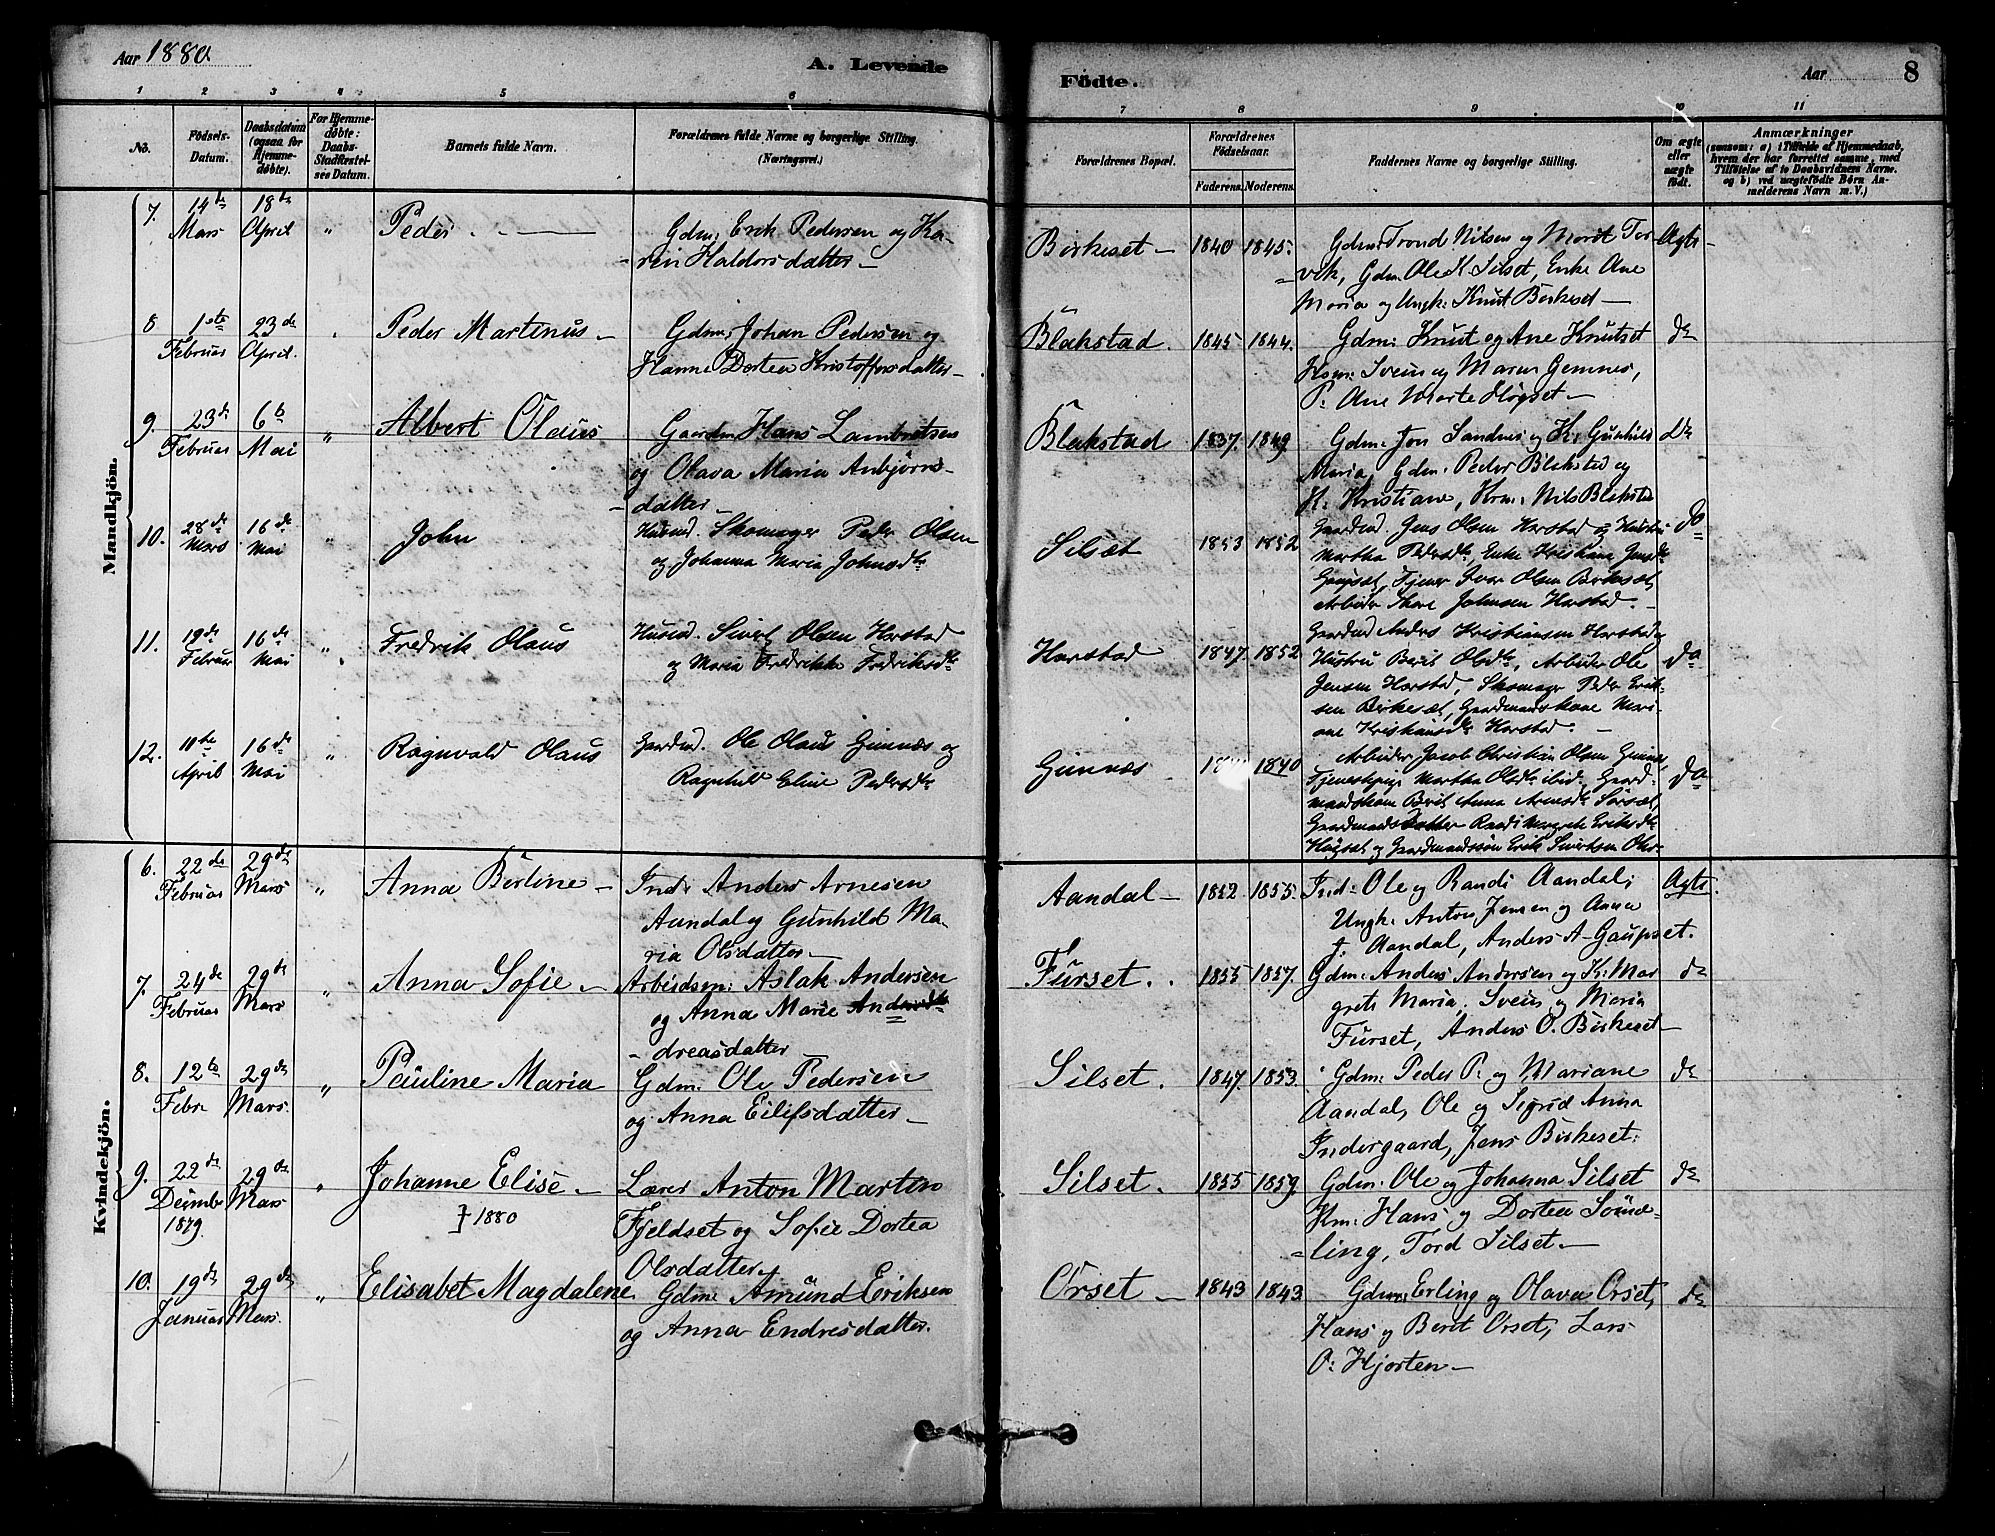 Aar 1880
A. Levende
Födte.
Aar
8
1 2 3 4 5 6 7 8 9 10 11
No.
Födsels-
Datum.
Daabsdatum
(ogsaa for
Hjemme-
døbte).
For Hjemme-
døbte:
Daabs-
Stadfæstel-
ses Datum.
Barnets fulde Navn.
Forældrenes fulde Navne og borgerlige Stilling.
(Næringsvei.)
Forældrenes Bopæl.
Forældrenes
Födselsaar.
Faderens. Moderens.
Faddernes Navne og borgerlige Stilling.
Om ægte
eller
uægte
født.
Anmærkninger
(saasom: a) i Tilfælde af Hjemmedaab,
hvem der har forrettet samme, med
Tilføielse af to Daabsvidners Navne,
og b) ved uægtefødte Börn An-
melderens Navn m. V.)
Mandkjön.
7. 14de Mars 18de April " Peder
Gdm: Erik Pedersen og Ka-
ren Haldorsdatter
Birkeset 1840 1845.
Gdm: Trond Nilsen og Marit Tor-
vik, Gdm. Ole K. Silset, Enke Ane
Maria og Ungk: Knut Birkeset
Ægte
8 1ste Februar 23de April. Peder Martinus
Gdm: Johan Pedersen og
Hanne Dortea Kristoffersdatter
Blakstad 1845 1844.
Gdm: Knut og Ane Knutset
Husm: Svein og Maren Gemnes,
P. Ane Marte Høgset
do
9. 23de Februar 6te Mai " Albert Olaus
Gaardm Hans Lambertsen
og Olava Maria Anbjørns-
datter
Blakstad 1837. 1849.
Gdm: Jon Sandnes og K: Gunhild
Maria, Gdm. Peder Blakstad og
K. Kristiane, Krm. Nils Blakstad
do
10. 28de Mars 16de Mai John
Husmd. Skomager Peder Olsen
og Johanna Maria Johnsdtr
Silsæt 1853 1852
Gaardmd. Jens Olsen Harstad og Hustru
Martha Pedersdtr, Enke Kristiane Jensdtr
Gaupsæt, Tjener Iver Olsen Birkesæt,
Arbeider Thore Johnsen Harstad.
do
11. 19de Februar 16de Mai " Fredrik Olaus
Husmd. Sivert Olsen Harstad
og Maria Fredrikke Fredriksdtr
Harstad 1847. 1852
Gaardmd Anders Kristiansen Harstad og
Hustru Berit Olsdtr, Arbeider Ole
Jensen Harstad, Skomager Peder Erik-
sen Birkesæt, Gaardmandskone Mari-
ane Kristiansdtr Harstad.
do
12. 11te April 16de Mai " Ragnvald Olaus
Gaardmd. Ole Olaus Gimnæs og
Ragnhild Eline Pedersdtr
Gimnæs 1840
Arbeider Jacob Christian Olsen Gimnæs,
Tjenestepige Martha Olsdtr ibid, Gaard-
mandskone Berit Anna Arnesdtr Sørsæt,
Gaardmandsdatter Randi Margrete Eriksdtr
Høgsæt og Gaardmandssøn Erik Sivertsen
do
Kvindekjön.
6. 22de Februar 29de Mars " Anna Berline
Inds: Anders Arnesen
Aandal og Gunhild Ma-
ria Olsdatter
Aandal 1852 1855.
Ind: Ole og Randi Aandal,
Ungk. Anton Jensen og Anna
J. Aandal, Anders A. Gaupset.
Ægte.
7. 24de Februar 29de Mars " Anna Sofie
Arbeidsm: Aslak Andersen
og Anna Marie An
dreasdatter
Furset 1855 1857.
Gdm: Anders Andersen og K: Mar
grete Maria, Svein og Maria
Furset, Anders O. Birkeset
do
8. 12te Febr 29de Mars. " Pauline Maria
Gdm: Ole Pedersen
og Anna Eilifsdatter
Silset. 1847. 1853.
Gdm: Peder P. og Mariane
Aandal, Ole og Sigrid Anna
Indergaard, Jens Birkeset.
do
9. 22de Decmbr 1879. 29de Mars " Johanne Elise
1880
Lærer Anton Martin
Fjeldset og Sofie Dortea
Olsdatter.
Silset. 1855 1859.
Gdm. Ole og Johanna Silset
Km: Hans og Dortea Sømd-
ling, Tord Silset.
do
10. 19de Januar 29de Mars. " Elisabet Magdalene
Gdm: Amund Eriksen
og Anna Endresdatter.
Orset 1843 1843
Gdm: Erling og Olava Orset,
Hans og Beret Orset, Lars
O: Hjorten
do